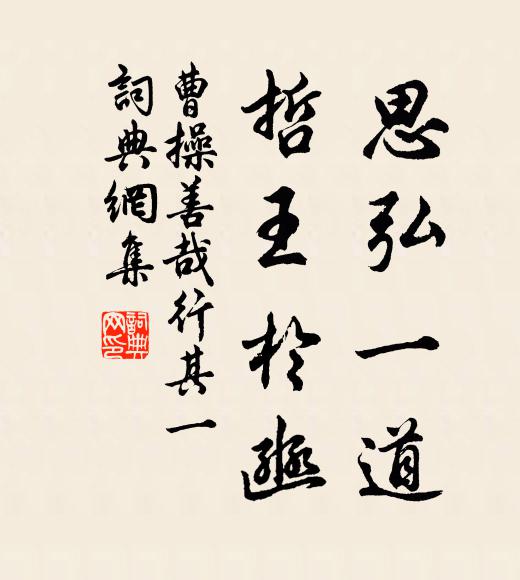 思弘一道
哲王於豳
曹操善哉行其一
詞典網集
詞典網印